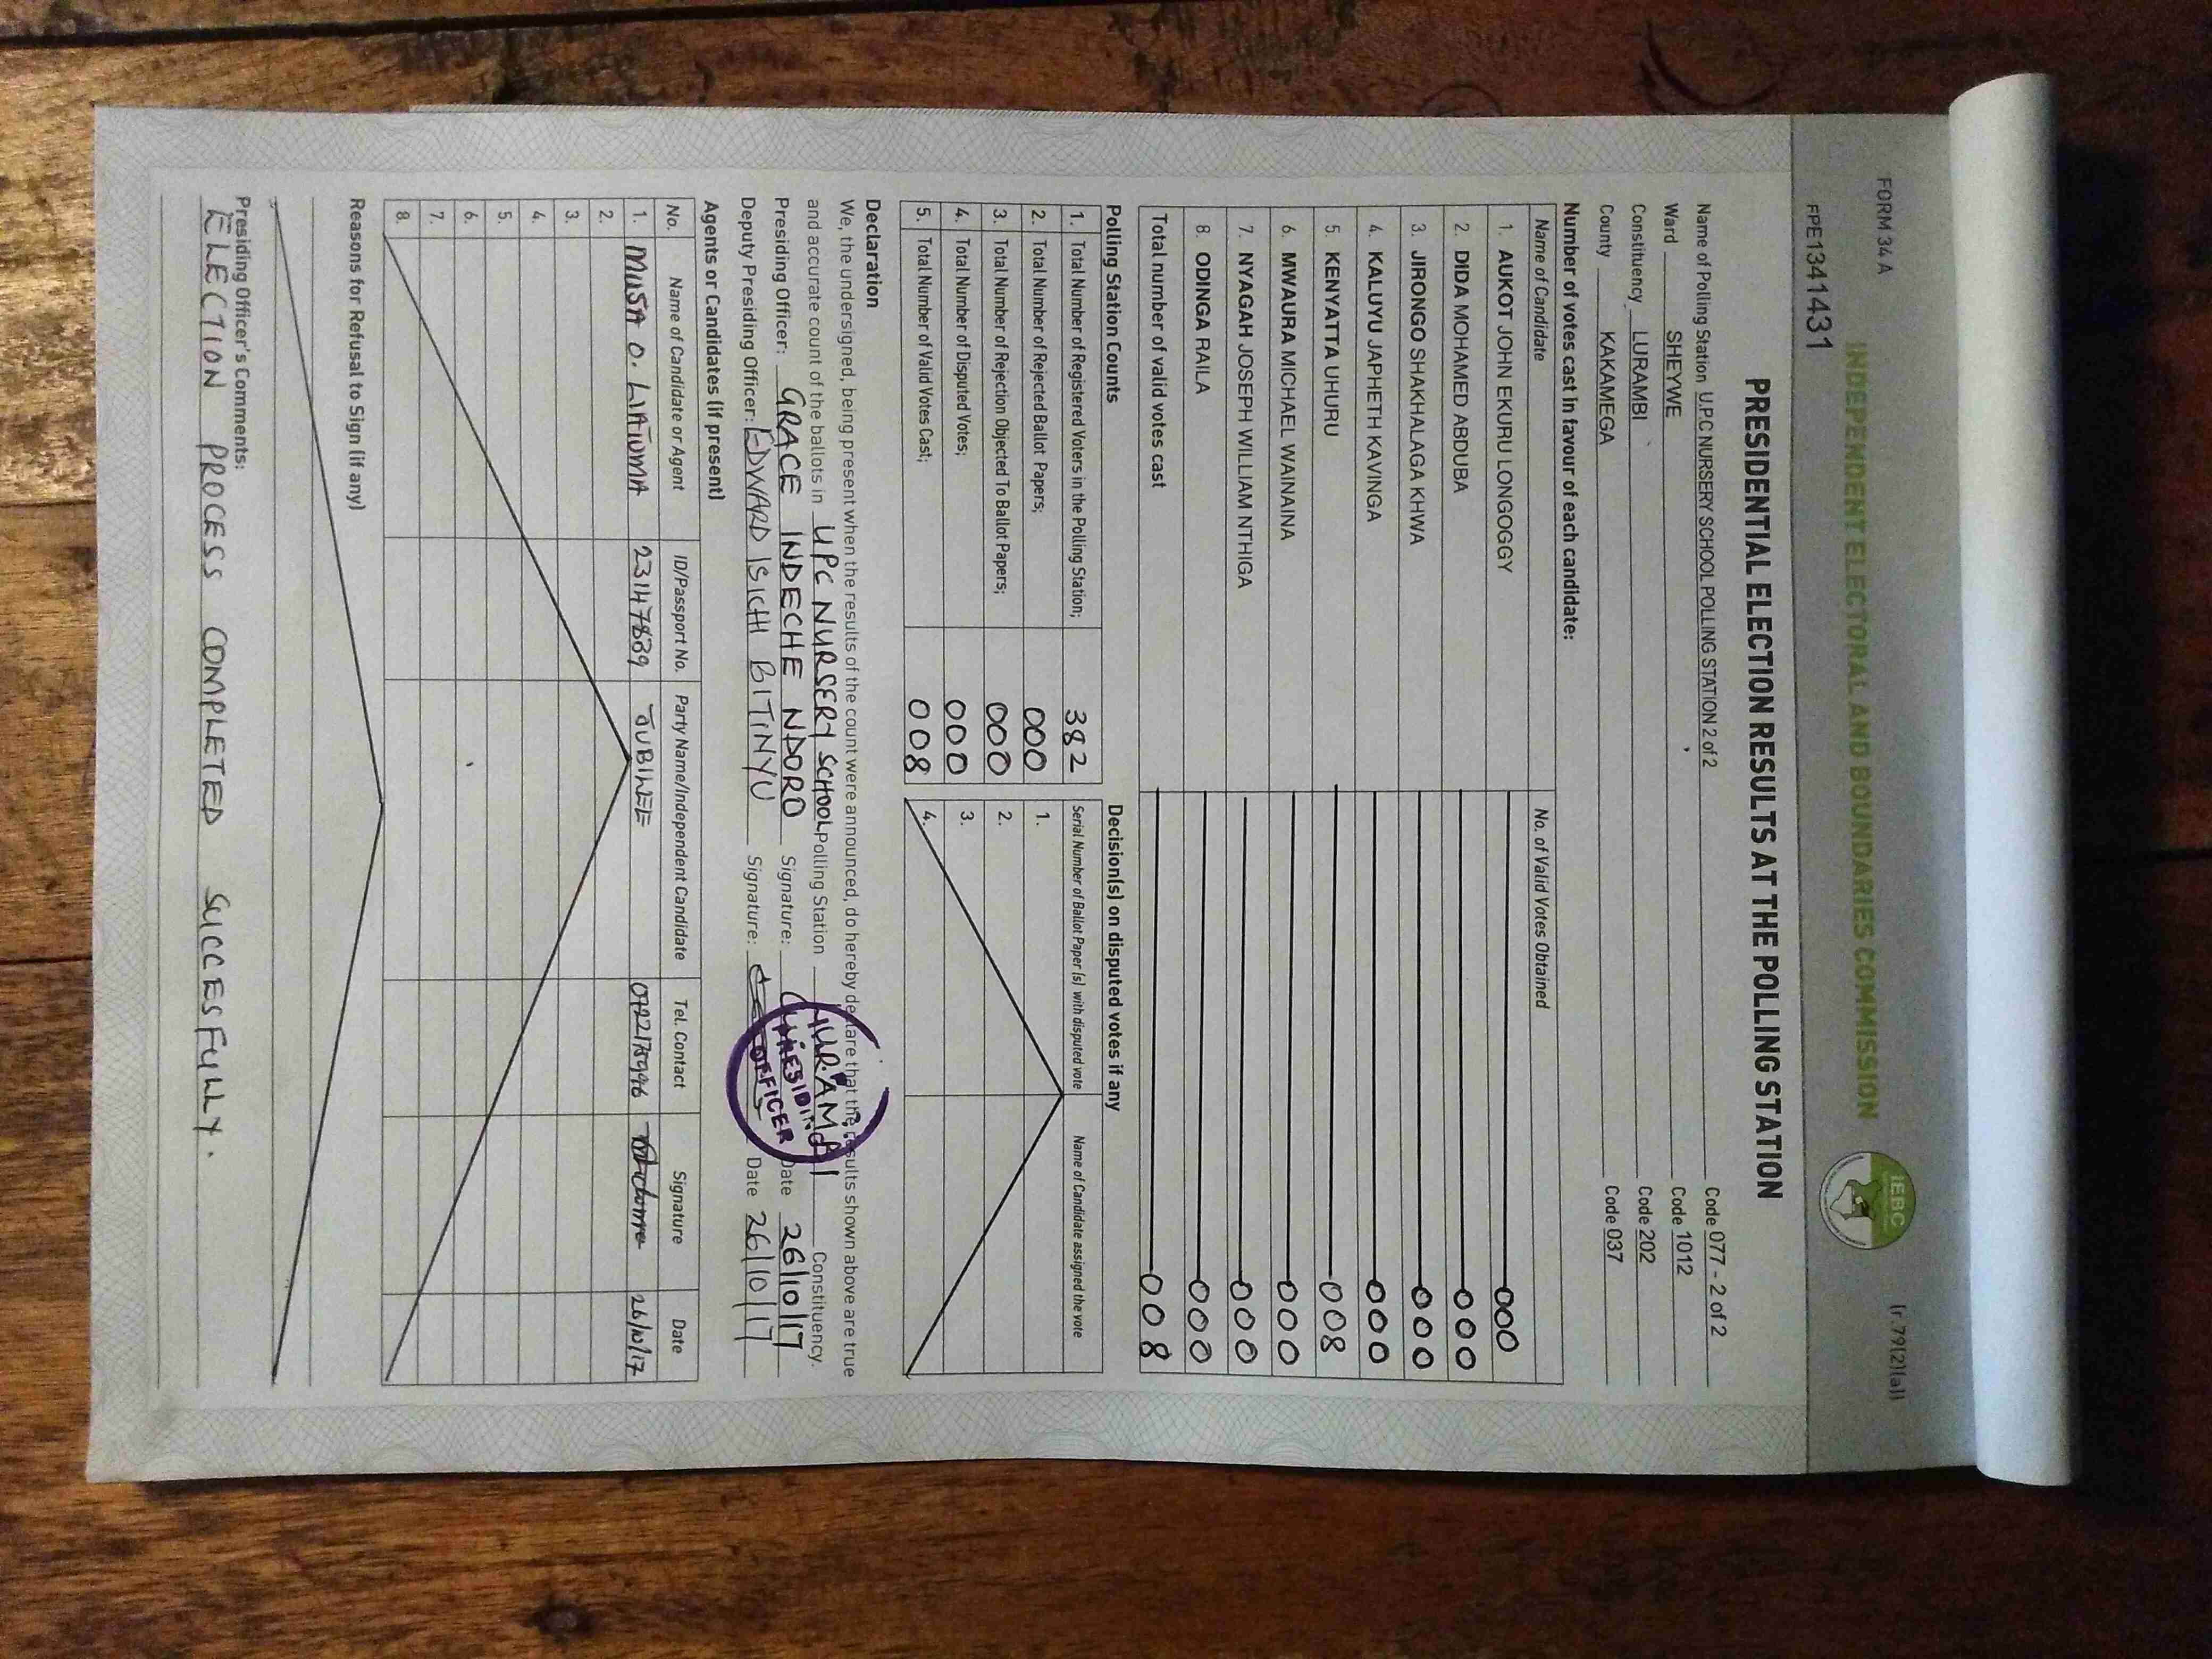 FORM 34 A
(r.79(2)(a))
INDEPENDENT ELECTORAL AND BOUNDARIES COMMISSION
IEBC
FPE1341431
PRESIDENTIAL ELECTION RESULTS AT THE POLLING STATION
Name of Polling Station U.P.C NURSERY SCHOOL POLLING STATION 2 of 2 Code 077 - 2 of 2
Ward SHEYWE Code 1012
Constituency LURAMBI Code 202
County KAKAMEGA Code 037
Number of votes cast in favour of each candidate:
Name of Candidate No. of Valid Votes Obtained
1. AUKOT JOHN EKURU LONGOGGY 000
2. DIDA MOHAMED ABDUBA 000
3. JIRONGO SHAKHALAGA KHWA 000
4. KALUYU JAPHETH KAVINGA 000
5. KENYATTA UHURU 008
6. MWAURA MICHAEL WAINAINA 000
7. NYAGAH JOSEPH WILLIAM NTHIGA 000
8. ODINGA RAILA 000
Total number of valid votes cast 008
Polling Station Counts
1. Total Number of Registered Voters in the Polling Station; 382
2. Total Number of Rejected Ballot Papers; 000
3. Total Number of Rejection Objected To Ballot Papers; 000
4. Total Number of Disputed Votes; 000
5. Total Number of Valid Votes Cast; 008
Decision(s) on disputed votes if any
Serial Number of Ballot Paper (s) with disputed vote Name of Candidate assigned the vote
1.
2.
3.
4.
Declaration
We, the undersigned, being present when the results of the count were announced, do hereby declare that the results shown above are true
and accurate count of the ballots in UPC NURSERY SCHOOL Polling Station LURAMBI Constituency.
Presiding Officer: GRACE INDECHE NDORO Signature: Date 26/10/17
Deputy Presiding Officer: EDWARD ISICHI BITINYU Signature: Date 26/10/17
PRESIDING
OFFICER
Agents or Candidates (if present)
No. Name of Candidate or Agent ID/Passport No. Party Name/Independent Candidate Tel. Contact Signature Date
1. MUSA O. 23147839 JUBILEE 26/10/17
2.
3.
4.
5.
6.
7.
8.
Reasons for Refusal to Sign (if any)
Presiding Officer's Comments:
ELECTION PROCESS COMPLETED SUCCESFULLY.